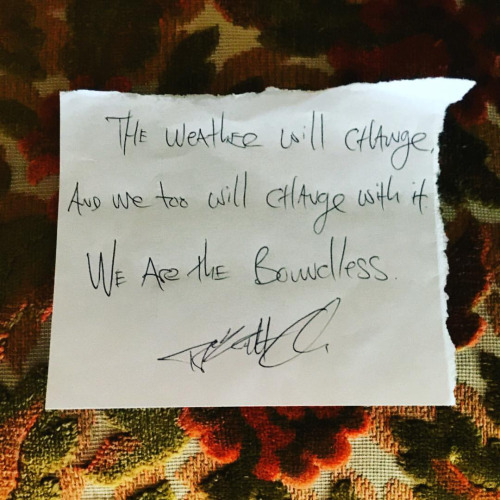 THE WEATHER will CHANGE,
AND WE too will CHANGE with it
WE ARE tHE BOUNDLESS.